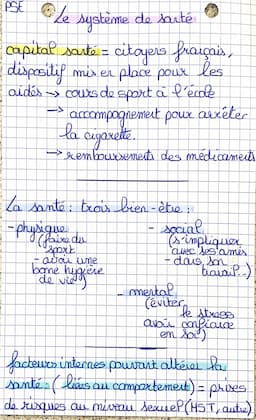 PSE
Le système de santé
capital santé = citoyens français,
dispositif mis en place pour les
aidés → cours de sport à l'école
→ accompagnement pour arrêter
la cigarette.
→ remboursements des médicaments
La santé : trois bien-être :
- physique - social
(faire du (s'impliquer
sport avec ses amis
- avoir une - dans son
bonne hygiène travail..)
de vie)
- mental
(éviter
le stress
avoir confiance
en soi)
facteurs internes pouvant altérer la
santé : (liées au comportement) = prises
de risques au niveau sexuel (MST, autre)